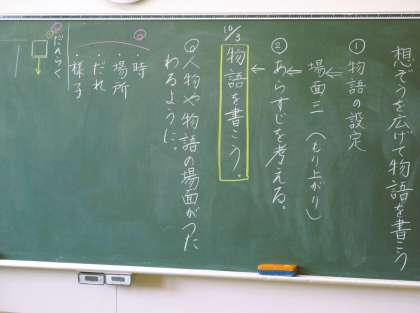 想ぞうを広げて物語を書こう
① 物語の設定
場面三（もり上がり）
② あらすじを考える。
10/3
物語を書こう。
人物や物語の場面がつたわるように。
・時
・場所
・だれ
・様子
だんらく